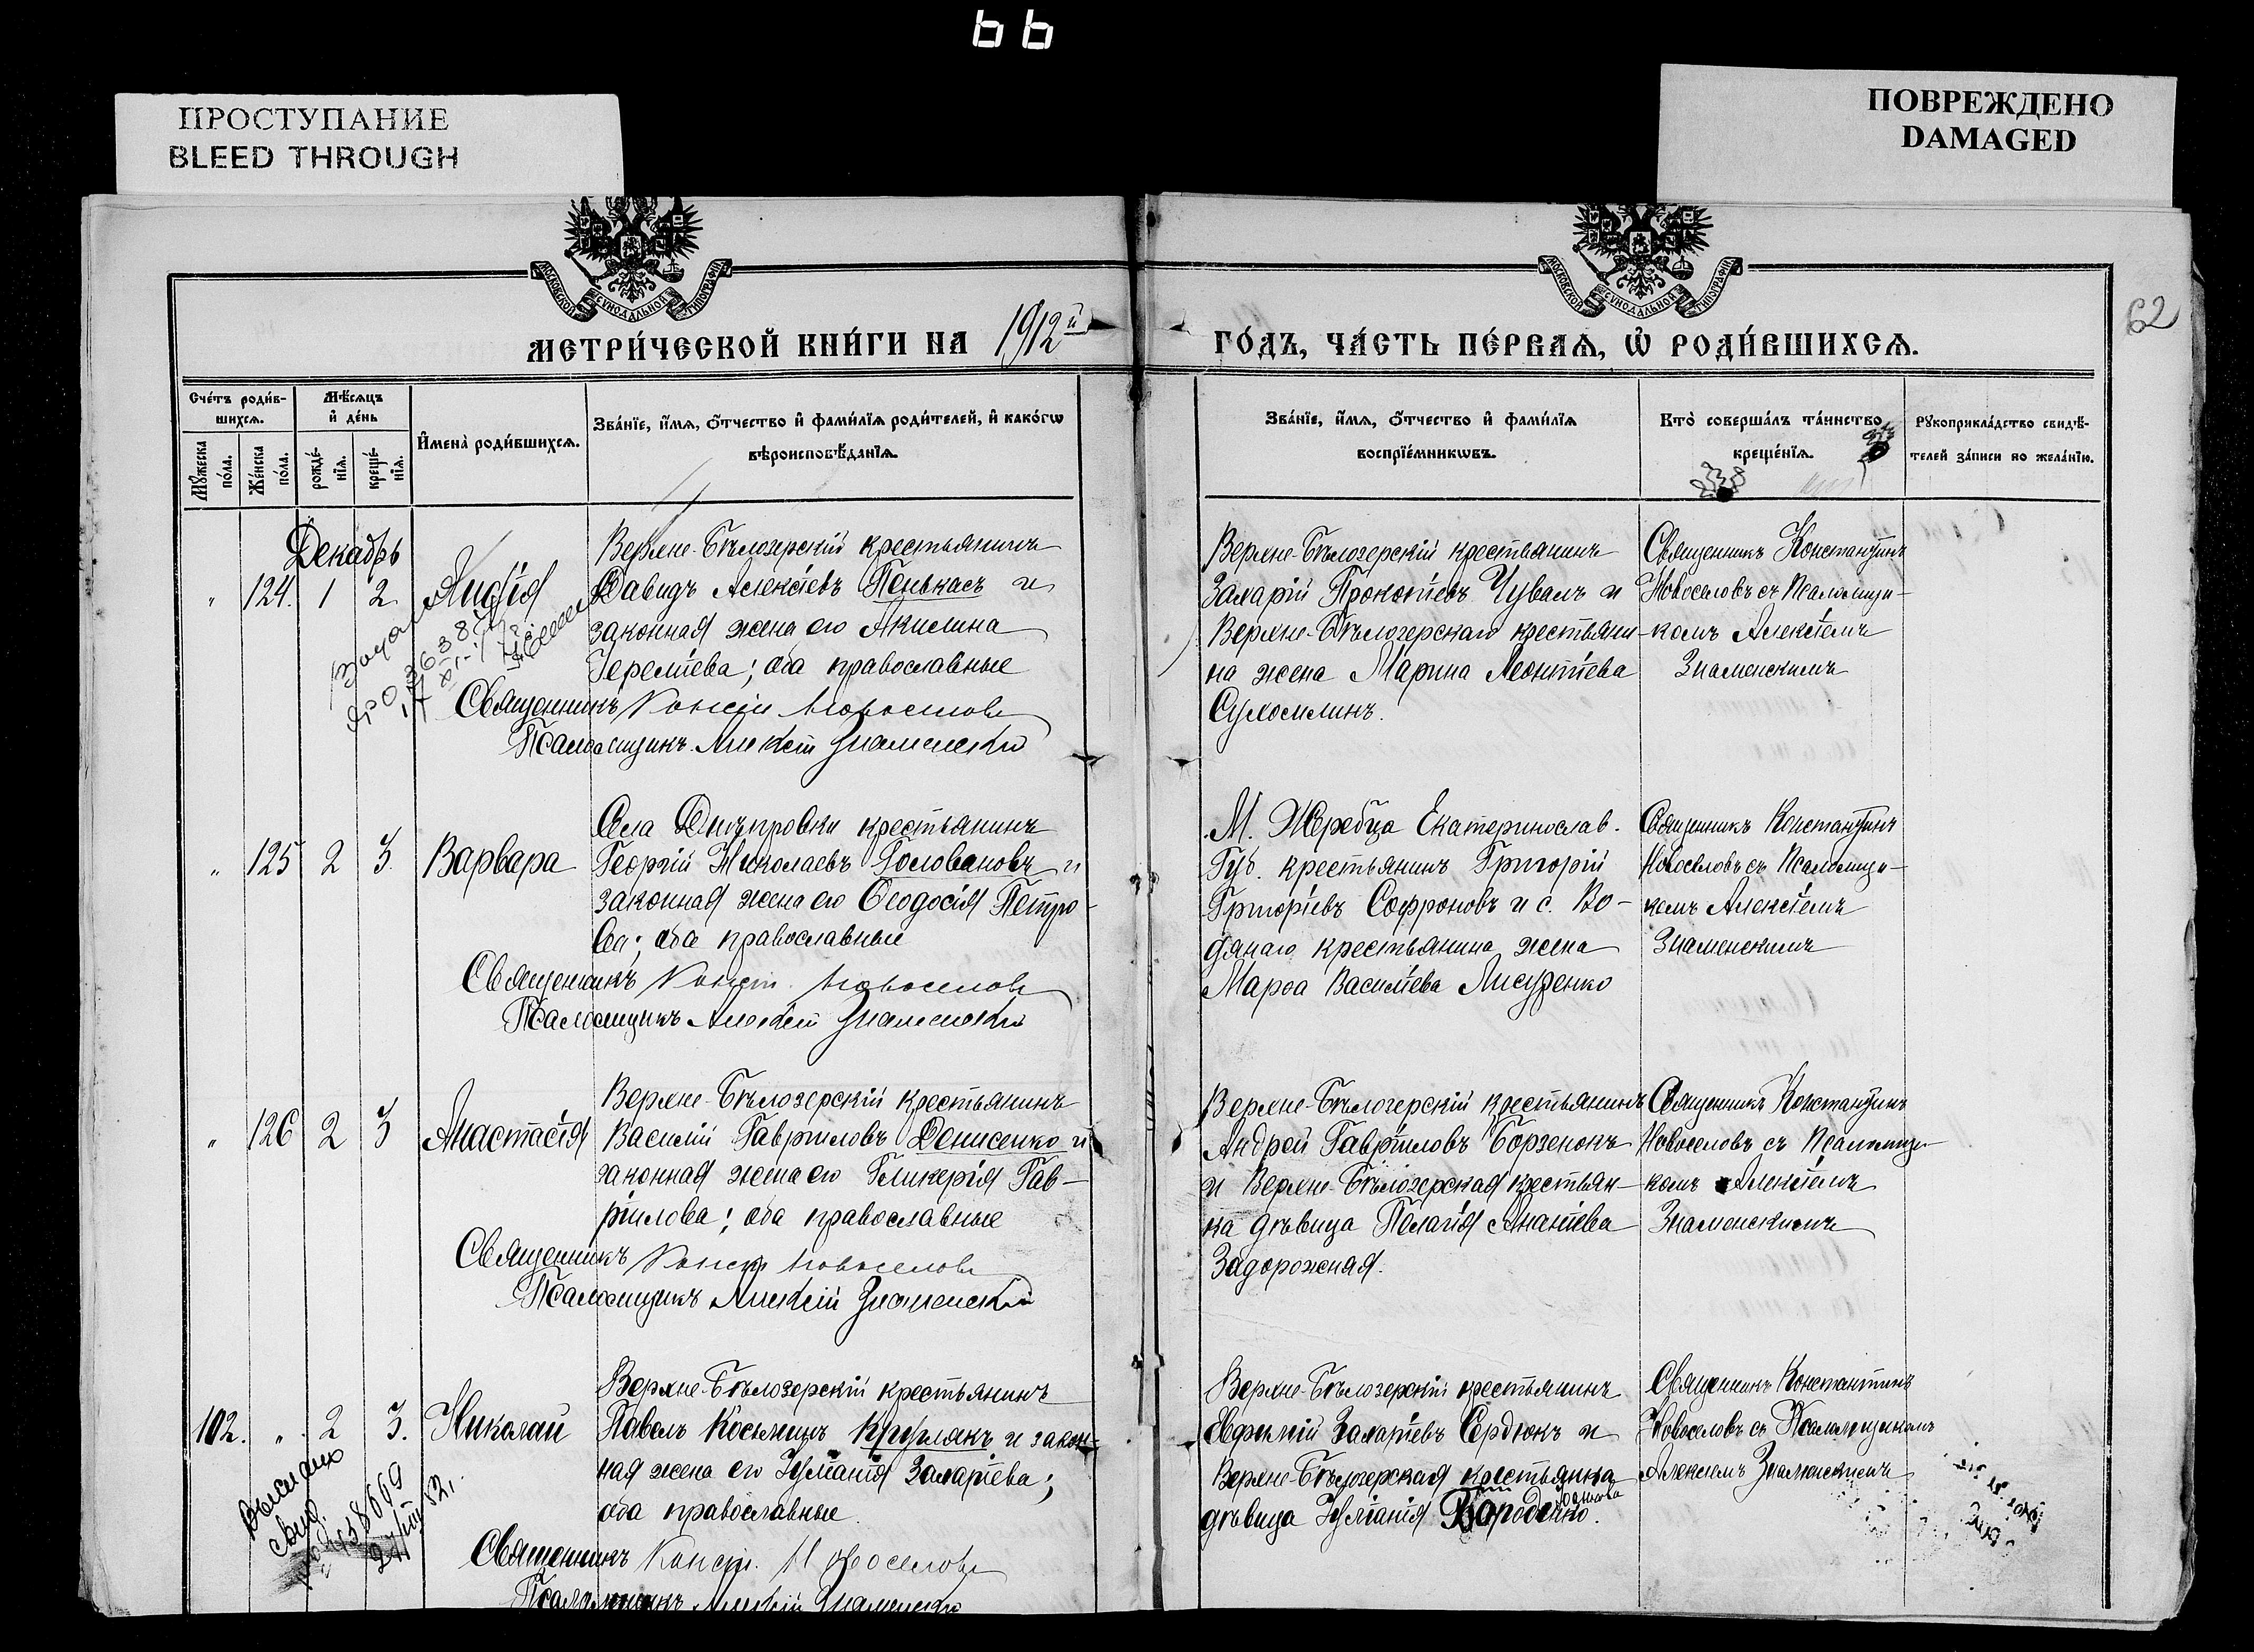 66
ПРОСТУПАНИЕ
BLEED THROUGH
ПОВРЕЖДЕНО
DAMAGED
МОСКОВСКОЙ СУНОДАЛЬНОЙ ТИПОГРАФІИ
МОСКОВСКОЙ СУНОДАЛЬНОЙ ТИПОГРАФІИ
62
МЕТРИ́ЧЕСКОЙ КНИ́ГИ НА 1912й
ГО́ДЪ, ЧА́СТЬ ПЕ́РВАѦ, Ѡ РОДИ́ВШИХСѦ.
Сче́тъ роди́в-
шихсѧ.
Мꙋжеска по́ла.
Же́нска по́ла.
Мѣ́сѧцъ
и҆ де́нь
рожде́-
нїѧ.
креще́-
нїѧ.
И҆мена̀ роди́вшихсѧ.
Зва́нїе, и҆́мѧ, ѻ҆́тчество и҆ фами́лїѧ роди́телей, и҆ како́гѡ
вѣроисповѣ́данїѧ.
Зва́нїе, и҆́мѧ, ѻ҆́тчество и҆ фами́лїѧ
воспрїе́мникѡвъ.
Кто̀ соверша́лъ та́инство
креще́нїѧ.
Рꙋкоприкла́дство свидѣ́-
телей за́писи по жела́нїю.
Декабрь
" 124. 1 2 Лидія
Верхне-Бѣлозерскій крестьянинъ
Давидъ Алексѣевъ Пенькасъ и
законная жена его Акилина
Іереміева; оба православные
Священникъ Конст. Новоселовъ
Псаломщикъ Алексѣй Знаменскій
Верхне-Бѣлозерскій крестьянинъ
Захарій Прокопіевъ Чувалъ и
Верхне-Бѣлозерскаго крестьяни-
на жена Марина Леонтіева
Сухомлинъ.
Священникъ Константинъ
Новоселовъ съ Псаломщи-
комъ Алексѣемъ
Знаменскимъ
" 125 2 3. Варвара
Села Днѣпровки крестьянинъ
Георгій Николаевъ Головановъ и
законная жена его Ѳеодосія Петро-
ва; оба православные
Священникъ Конст. Новоселовъ
Псаломщикъ Алексѣй Знаменскій
М. Жеребца Екатеринослав.
Губ. крестьянинъ Григорій
Григоріевъ Софроновъ и с. Во-
дянаго крестьянина жена
Марѳа Василіева Лисуренко
Священникъ Константинъ
Новоселовъ съ Псаломщи-
комъ Алексѣемъ
Знаменскимъ
" 126 2 3 Анастасія
Верхне-Бѣлозерскій крестьянинъ
Василій Гавріиловъ Денисенко и
законная жена его Гликерія Гав-
ріилова; оба православные
Священникъ Конст. Новоселовъ
Псаломщикъ Алексѣй Знаменскій
Верхне-Бѣлозерскій крестьянинъ
Андрей Гавріиловъ Борзенокъ
и Верхне-Бѣлозерская крестьян-
ка дѣвица Пелагія Ананіева
Задорожная.
Священникъ Константинъ
Новоселовъ съ Псаломщи-
комъ Алексѣемъ
Знаменскимъ
102. " 2 3. Николай
Верхне-Бѣлозерскій крестьянинъ
Павелъ Космичъ и закон-
ная жена его Іуліанія Захаріева;
оба православные.
Священникъ Конст. Новоселовъ
Псаломщикъ Алексѣй Знаменскій
Верхне-Бѣлозерскій крестьянинъ
Евфимій Захаріевъ Сердюкъ и
Верхне-Бѣлозерская крестьянка
дѣвица Іуліанія Бороденко.
Священникъ Константинъ
Новоселовъ съ Псаломщикомъ
Алексѣемъ Знаменскимъ